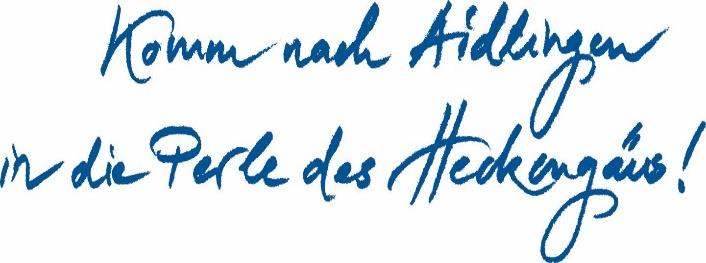 Komm nach Aidlingen
in die Perle des Heckengäus!